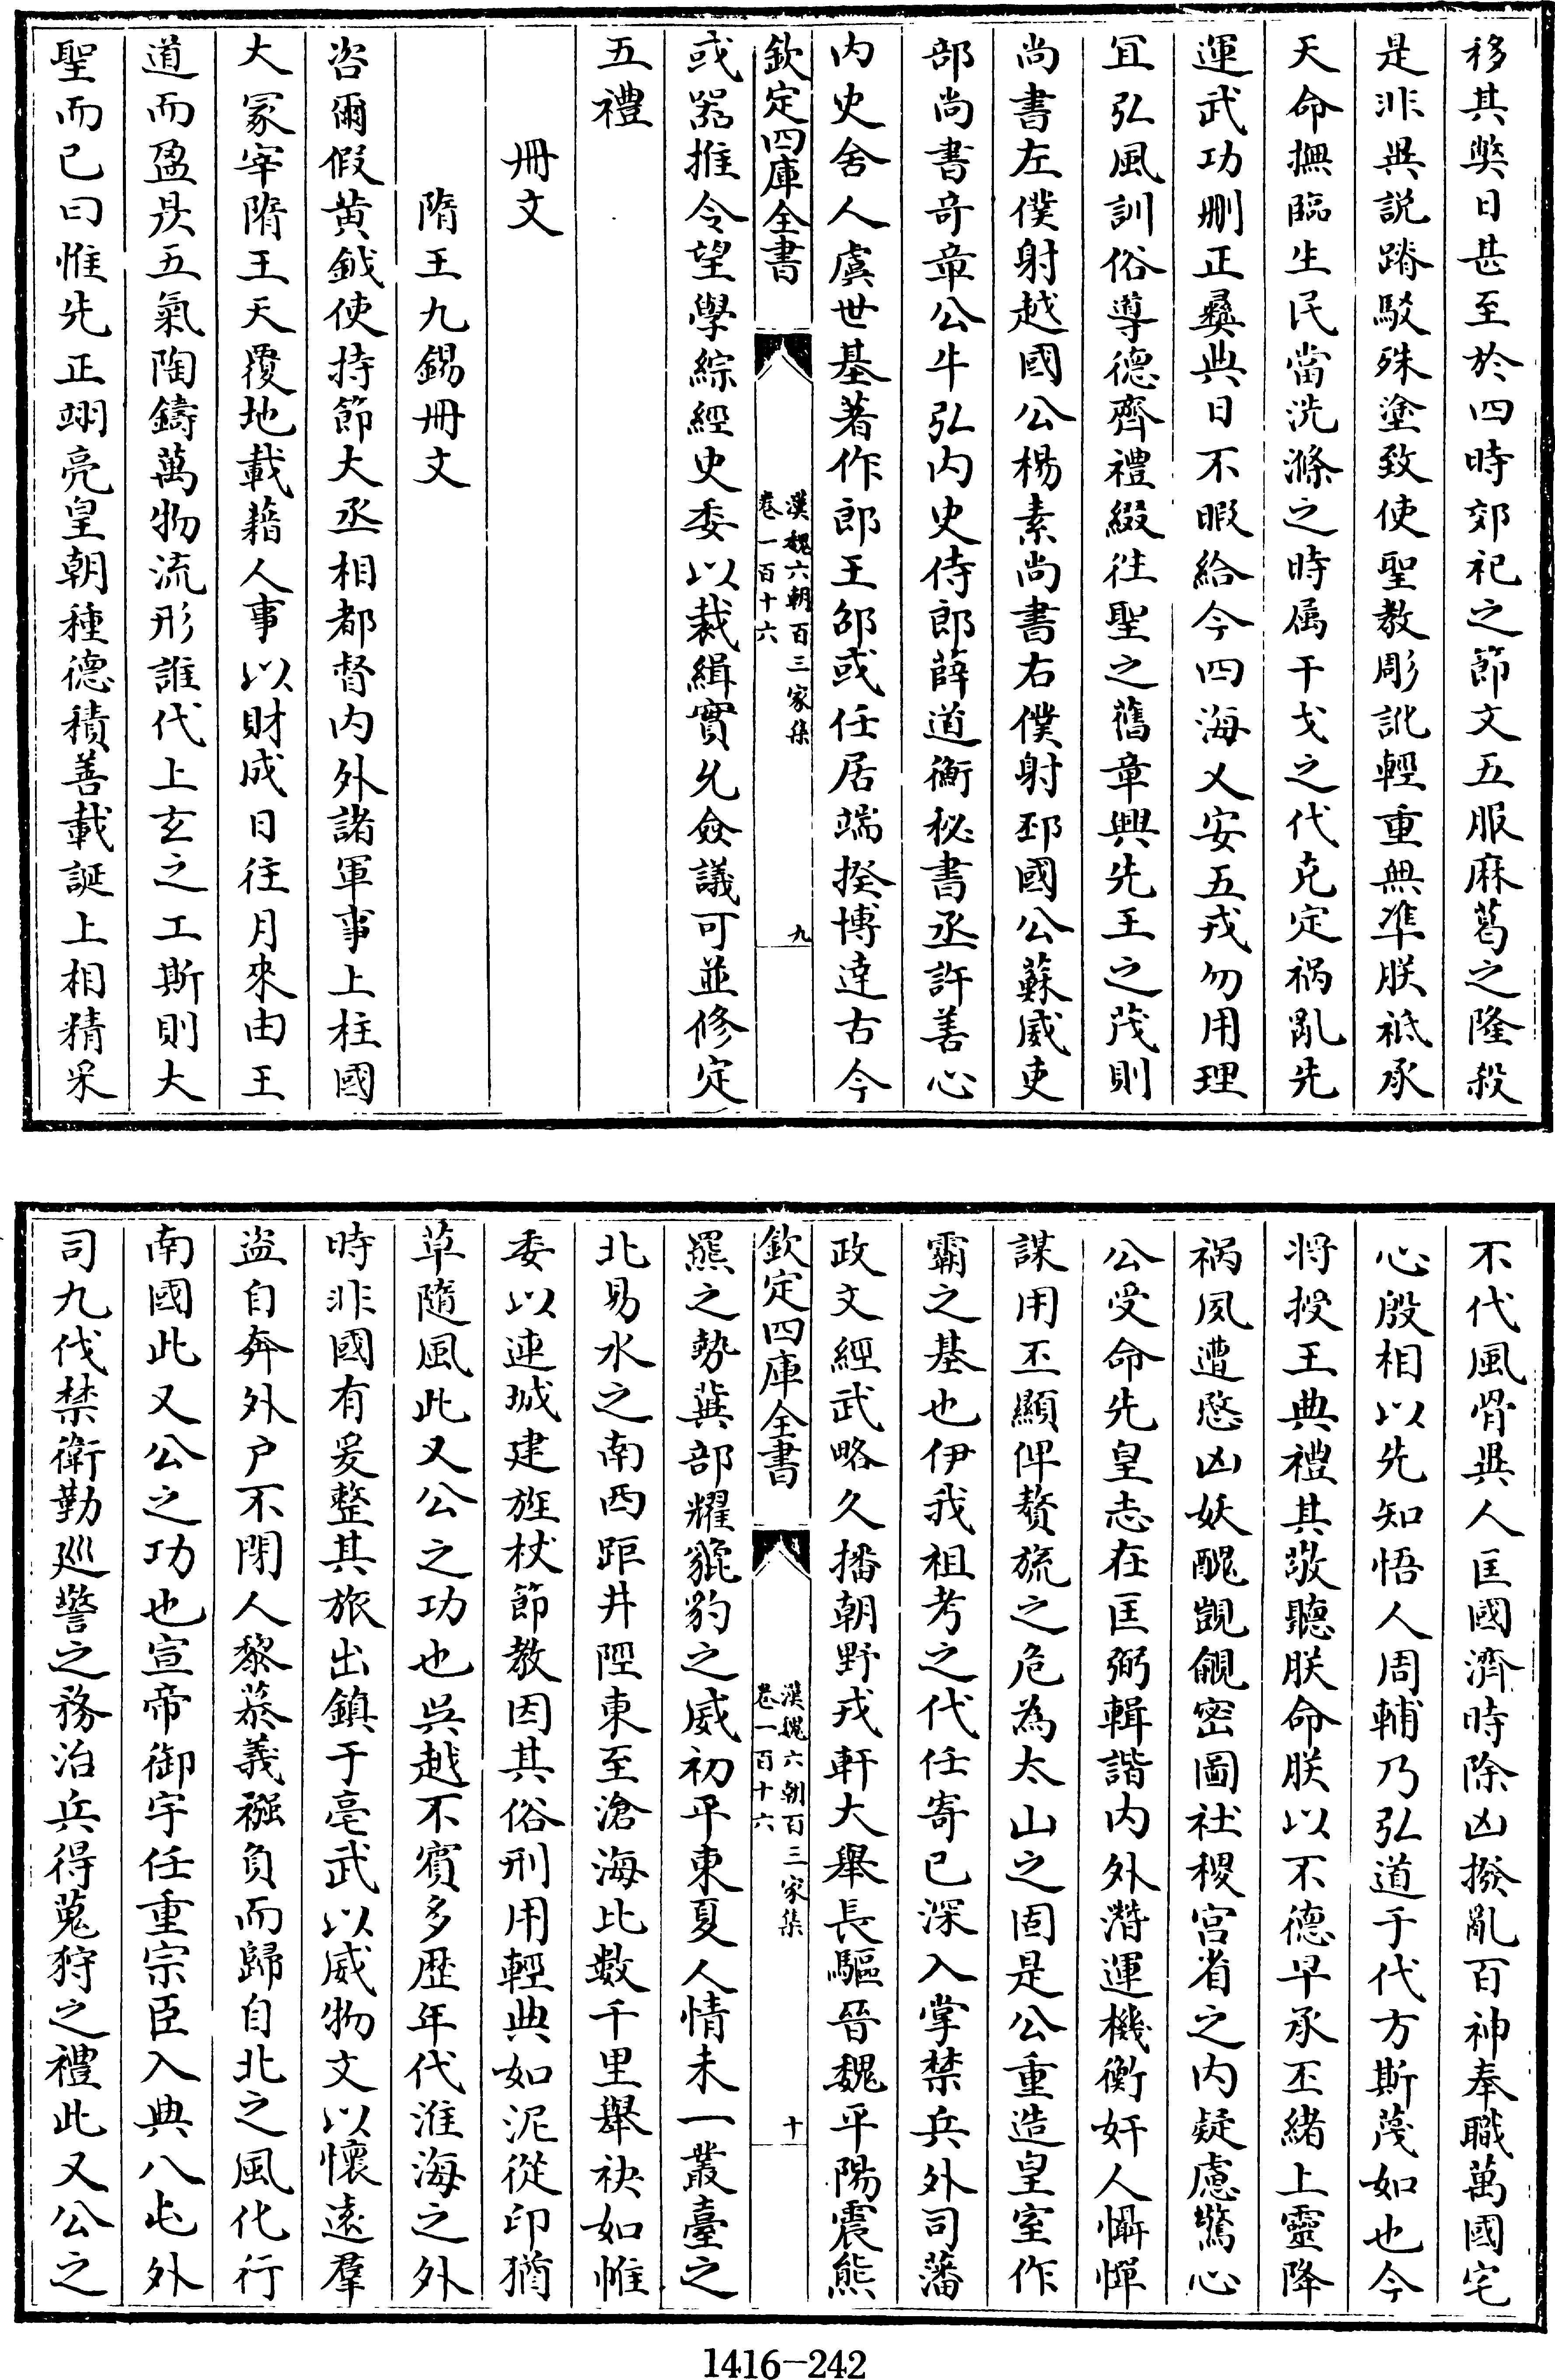 移其弊日甚至於四時郊祀之節文五服麻葛之隆殺
是非異説踳駁殊塗致使聖教彫訛輕重無準朕祗承
天命撫臨生民當洗滌之時属干戈之代克定禍亂先
運武功刪正彞典日不暇給今四海乂安五戎勿用理
冝弘風訓俗導德齊禮綴徃聖之舊章興先王之茂則
尚書左僕射越國公楊素尚書右僕射邳國公蘇威吏
部尚書奇章公牛弘内史侍郎薛道衡秘書丞許善心
内史舍人虞世基著作郎王邵或任居端揆博達古今
欽定四庫全書
漢魏六朝百三家集
卷一百十六
九
或器推令望學綜經史委以裁緝實允僉議可並修定
五禮
冊文
隋王九錫冊文
咨爾假黄鉞使持節大丞相都督内外諸軍事上柱國
大冢宰隋王天覆地載藉人事以財成日往月來由王
道而盈昃五氣陶鑄萬物流形誰代上玄之工斯則大
聖而已曰惟先正翊亮皇朝種德積善載誕上相精采
不代風骨異人匡國濟時除凶撥亂百神奉職萬國宅
心殷相以先知悟人周輔乃弘道于代方斯蔑如也今
将授王典禮其敬聽朕命朕以不德早承丕緒上靈降
禍夙遭愍凶妖醜覬覦密圖社稷宫省之内疑慮驚心
公受命先皇志在匡弼輯諧内外潛運機衡奸人懾憚
謀用丕顯俾贅旒之危為太山之固是公重造皇室作
霸之基也伊我祖考之代任寄已深入掌禁兵外司藩
政文經武略久播朝野戎軒大舉長驅晉魏平陽震熊
欽定四庫全書
漢魏六朝百三家集
卷一百十六
十
羆之勢冀部耀貔豹之威初平東夏人情未一叢臺之
北易水之南西距井陘東至滄海比數千里舉袂如帷
委以連城建旌杖節教因其俗刑用輕典如泥從印猶
草隨風此又公之功也吳越不賓多歴年代淮海之外
時非國有爰整其旅出鎮于亳武以威物文以懷遠羣
盗自奔外户不閉人黎慕義襁負而歸自北之風化行
南國此又公之功也宣帝御宇任重宗臣入典八屯外
司九伐禁衛勤巡警之務治兵得蒐狩之禮此又公之
1416-242